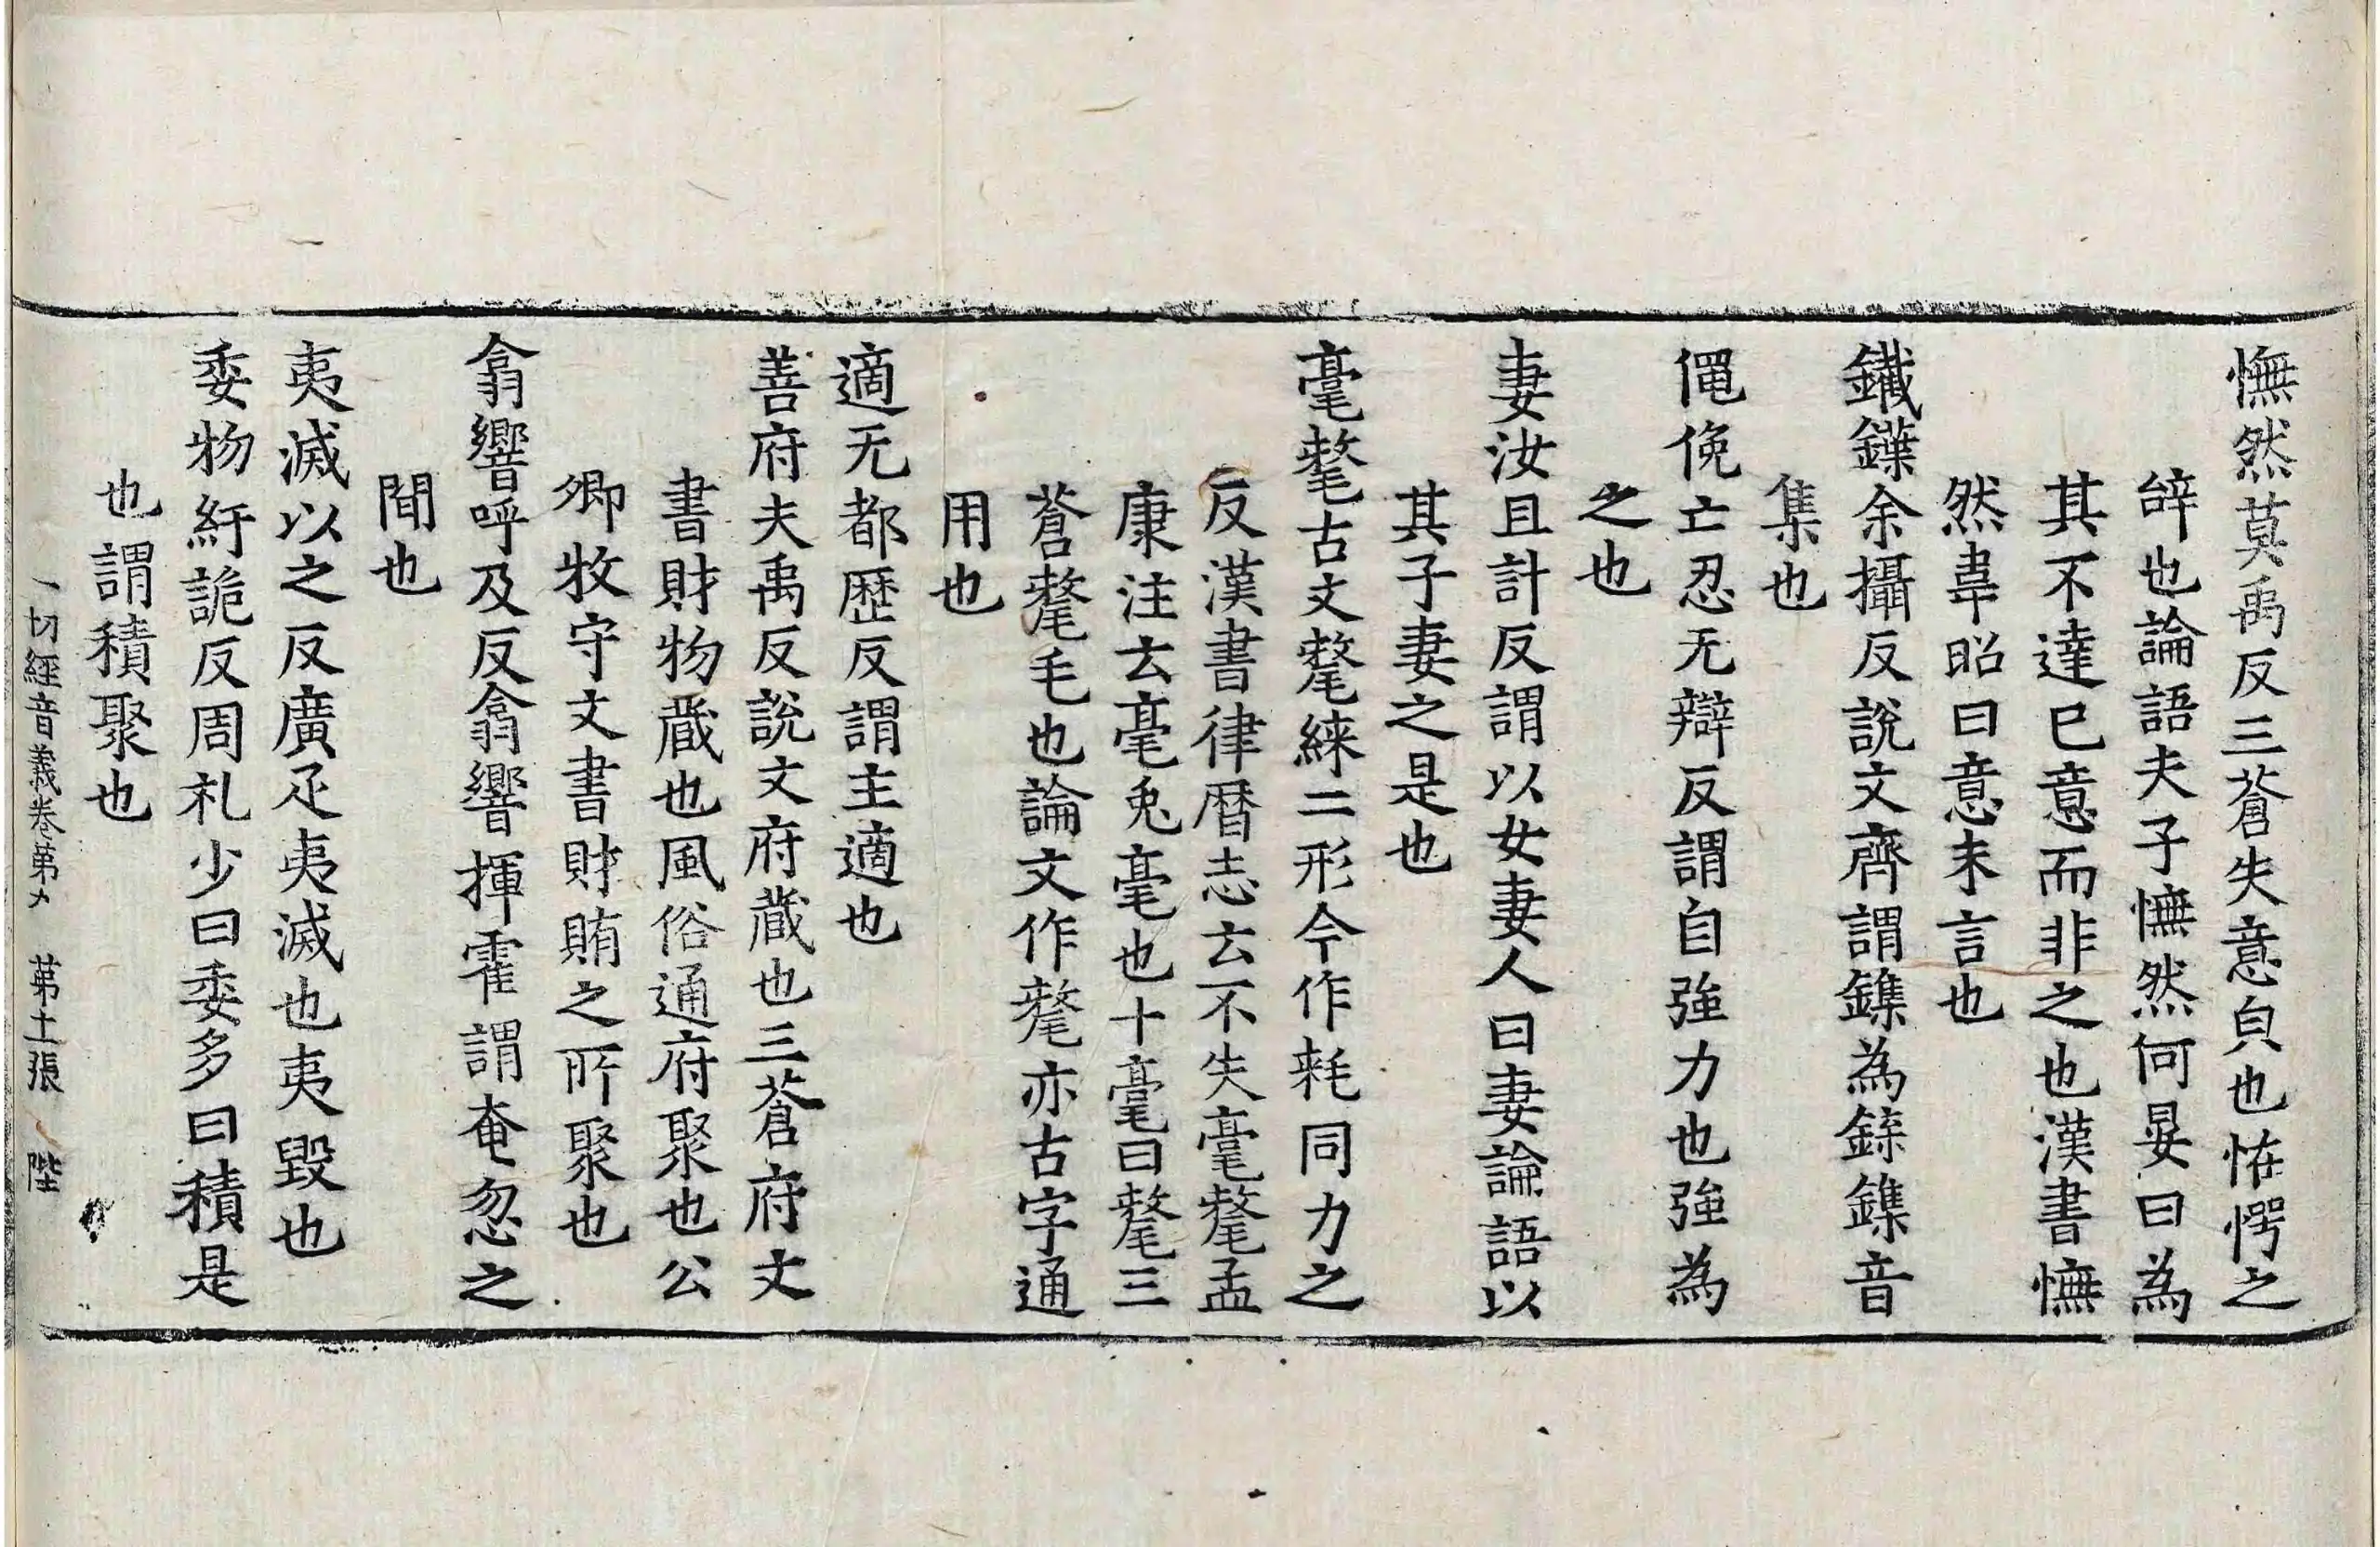 憮然莫禹反三蒼失意皃也恠愕之
辝也論語夫子憮然何晏曰為
其不達巳意而非之也漢書憮
然韋昭曰意未言也
鐵鍱余攝反說文齊謂鏶為鍱鏶音
集也
僶俛亡忍无辯反謂自強力也強為
之也
妻汝且計反謂以女妻人曰妻論語以
其子妻之是也
毫氂古文氂綵二形今作耗同力之
反漢書律曆志云不失毫氂孟
康注云毫兎毫也十毫曰氂三
蒼氂毛也論文作氂亦古字通
用也
適无都歷反謂主適也
善府夫禹反說文府蔵也三蒼府文
書財物蔵也風俗通府聚也公
卿牧守文書財賄之所聚也
翕響呼及反翕響揮霍謂奄忽之
間也
夷滅以之反廣疋夷滅也夷毀也
委物紆詭反周礼少曰委多曰積是
也謂積聚也
一切經音義卷第 第土張 陛